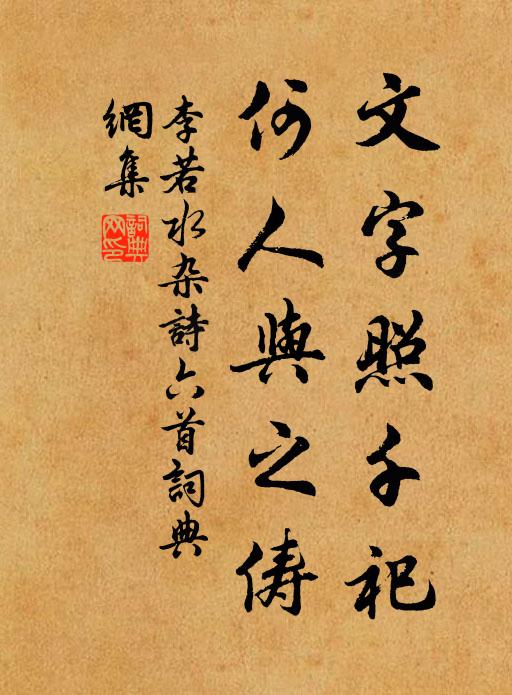 文字照千祀
何人與之儔
李若水杂詩六首詞典
網集
詞典
网印